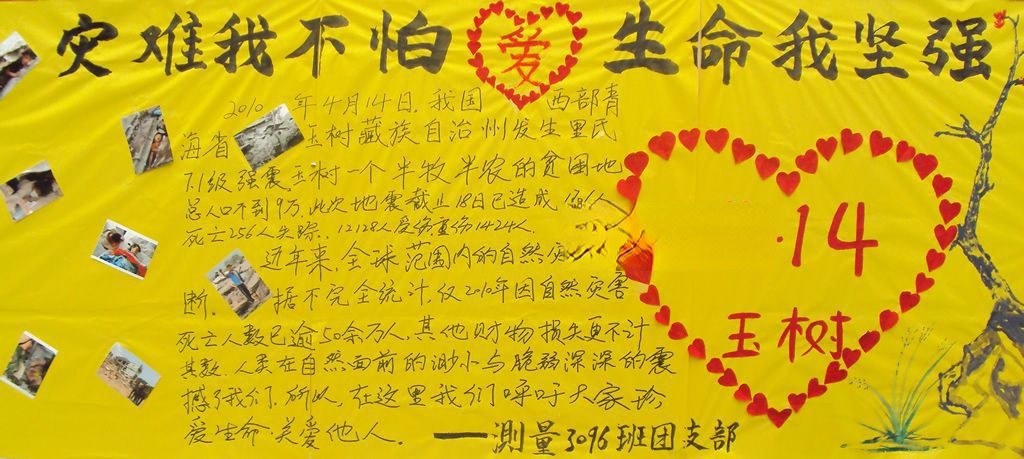 灾难我不怕 爱 生命我坚强
2010 年4月14日，我国 西部青
海省 玉树藏族自治州发生里氏
7.1级强震，玉树一个半牧半农的贫困地
总人口不到9万，此次地震截止18日已造成 人
死亡256人失踪，12128人受伤重伤1424人.
近年来，全球范围内的自然灾
断. 据不完全统计，仅2010年因自然灾害
死亡人数已逾50余万人，其他财物损失更不计
其数.人类在自然面前的渺小与脆弱深深的震
撼了我们.所以，在这里我们呼吁大家珍
爱生命.关爱他人.
——测量3096班团支部
·14
玉树